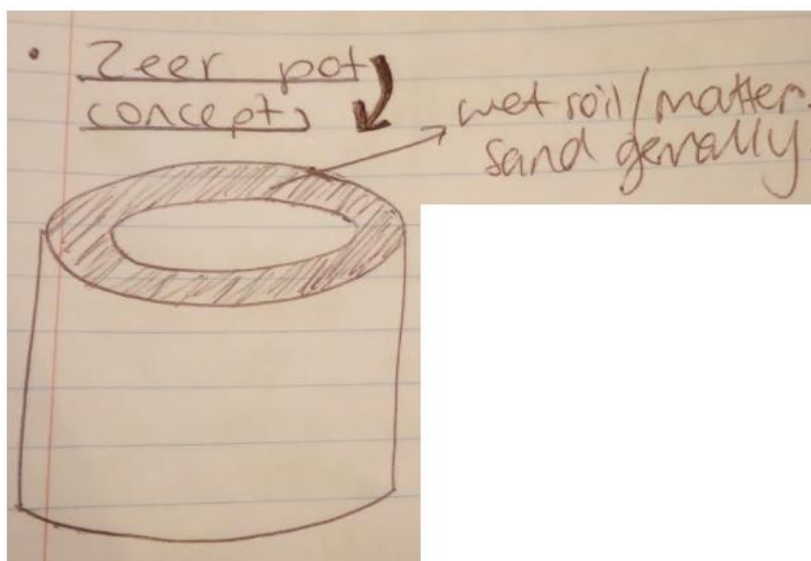 • Zeer pot
concept
wet soil/matter
sand genally